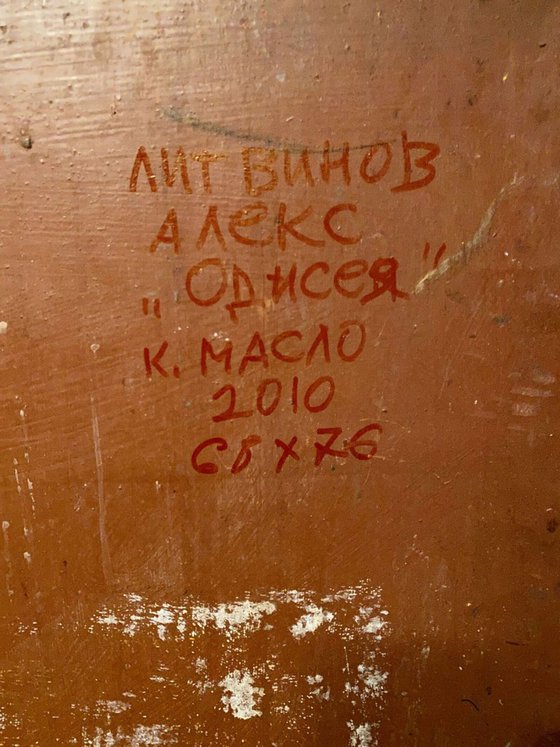 ЛИТВИНОВ
АЛЕКС
„Одисея"
к. МАСЛО
2010
68 х 76